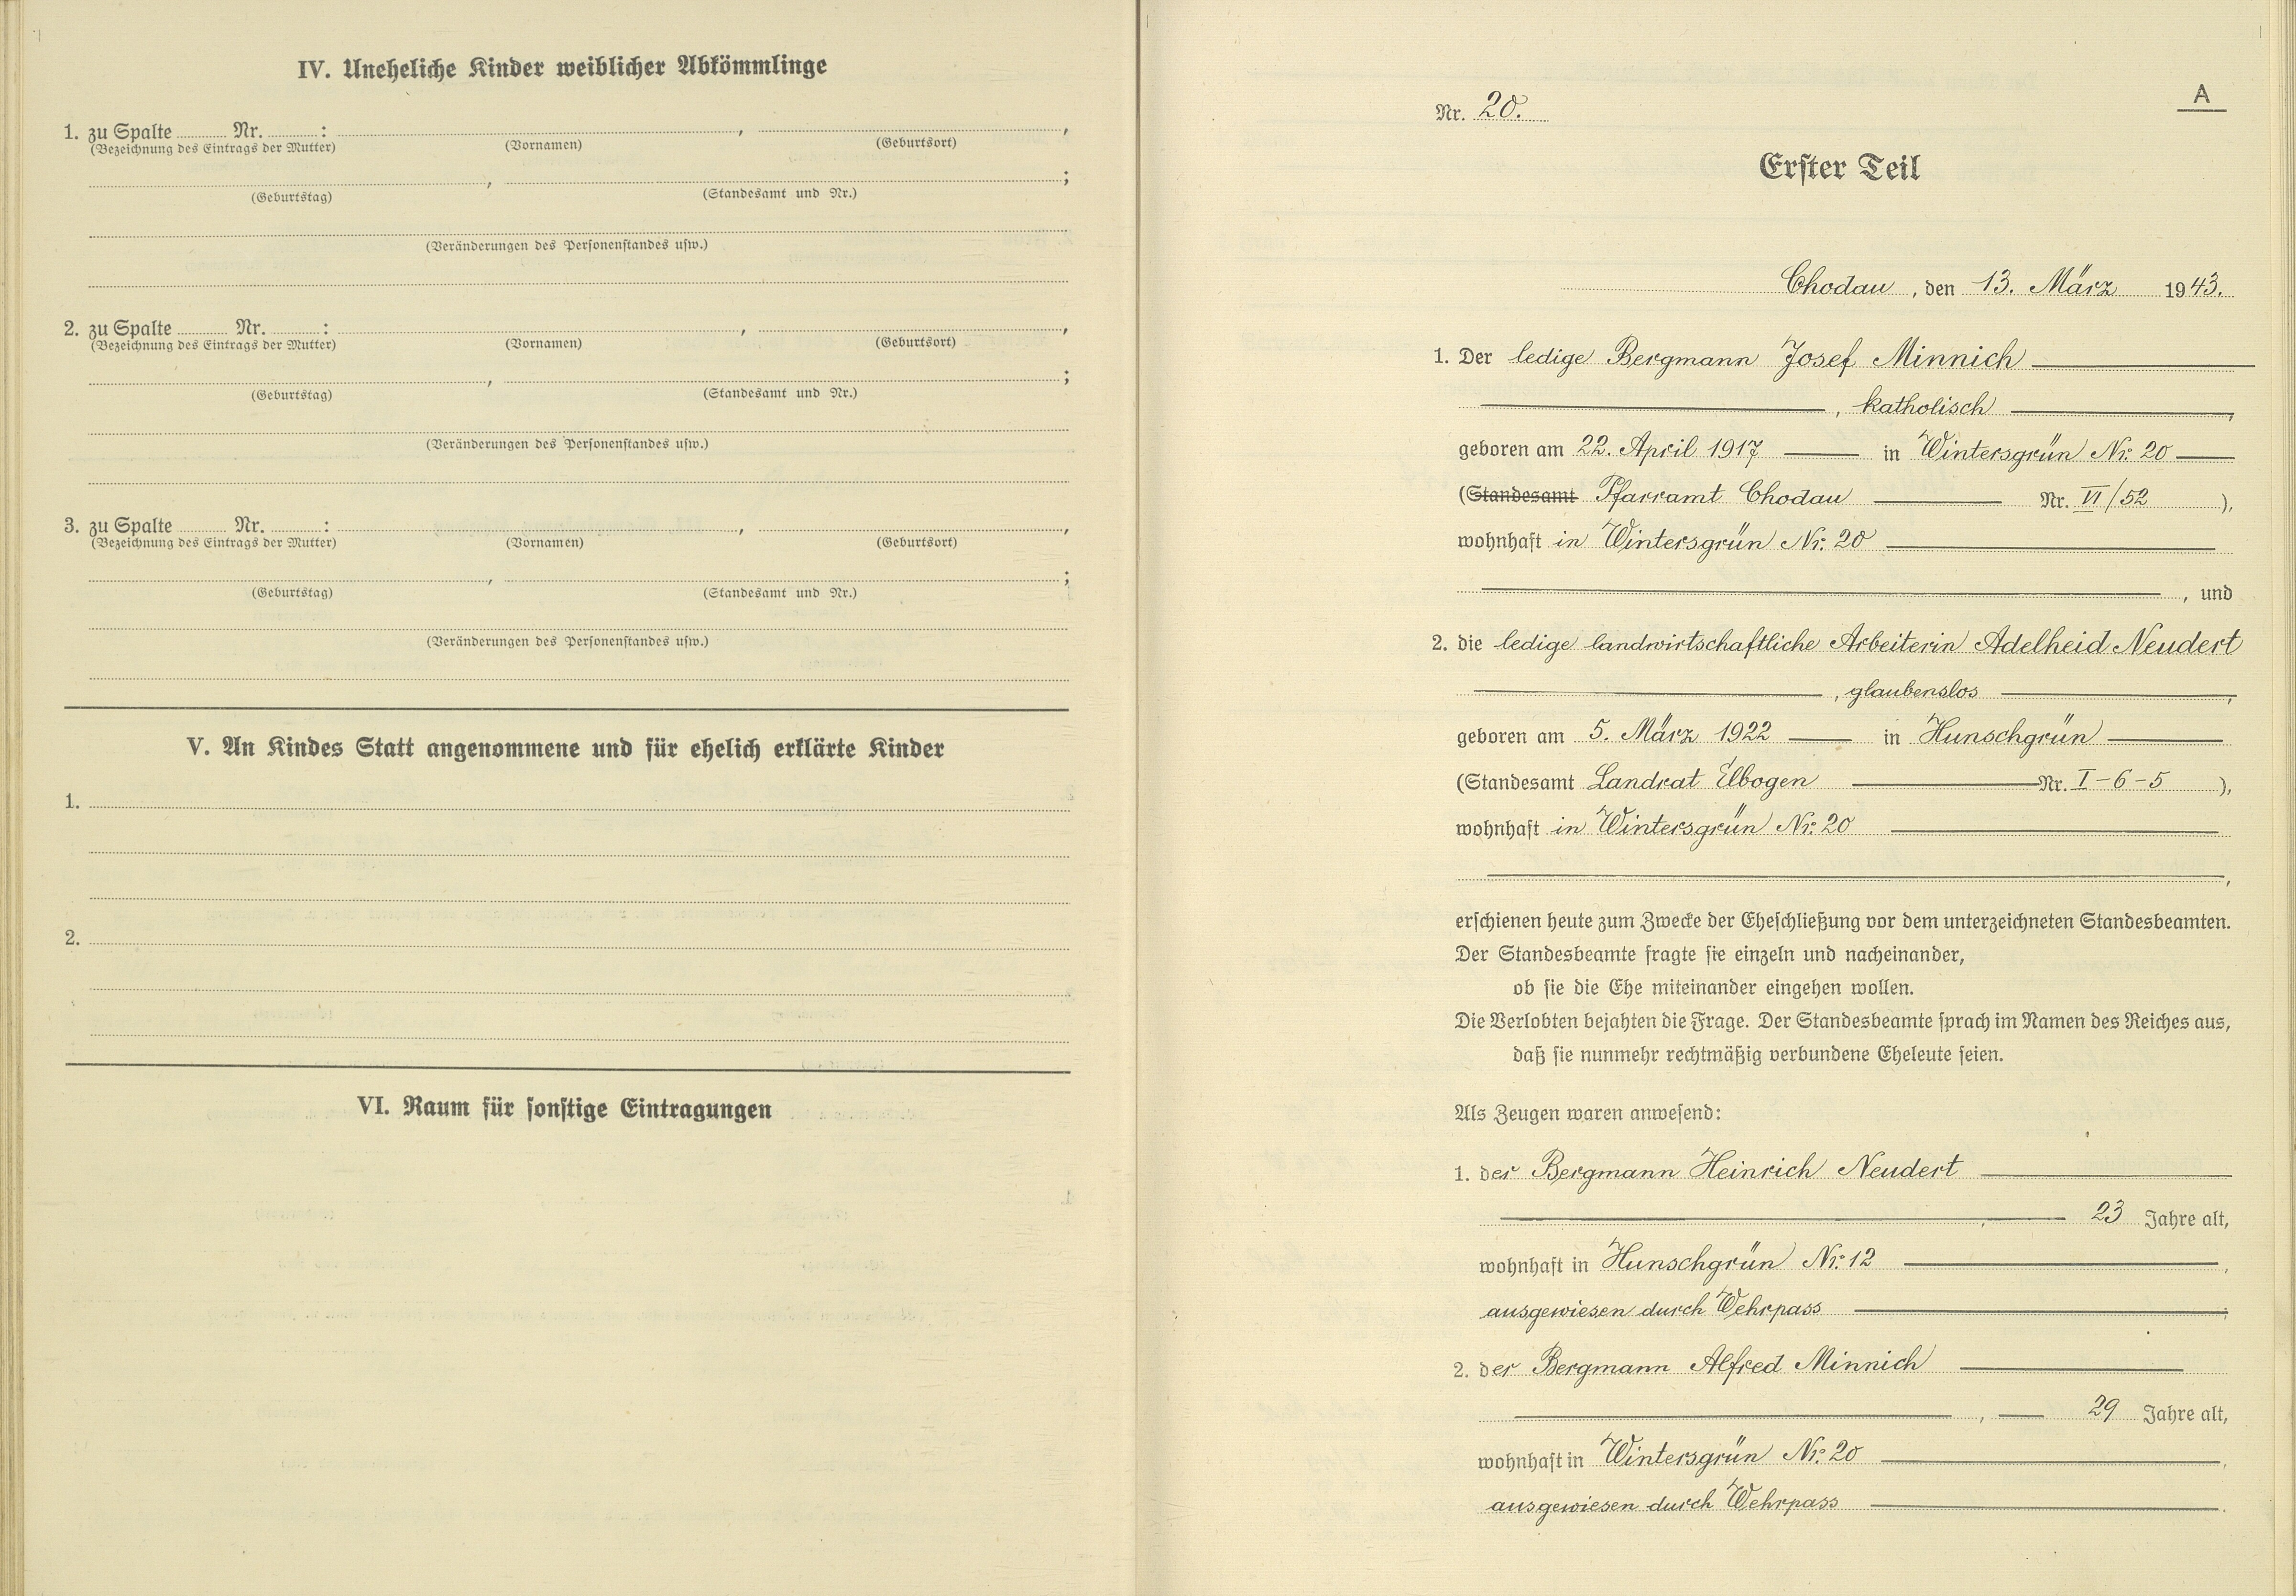 IV. Uneheliche Kinder weiblicher Abkömmlinge
1. zu Spalte Nr. : , ,
(Bezeichnung des Eintrags der Mutter) (Vornamen) (Geburtsort)
, ;
(Geburtstag) (Standesamt und Nr.)
(Veränderungen des Personenstandes usw.)
2. zu Spalte Nr. : , ,
(Bezeichnung des Eintrags der Mutter) (Vornamen) (Geburtsort)
, ;
(Geburtstag) (Standesamt und Nr.)
(Veränderungen des Personenstandes usw.)
3. zu Spalte Nr. : , ,
(Bezeichnung des Eintrags der Mutter) (Vornamen) (Geburtsort)
, ;
(Geburtstag) (Standesamt und Nr.)
(Veränderungen des Personenstandes usw.)
V. An Kindes Statt angenommene und für ehelich erklärte Kinder
1.
2.
VI. Raum für sonstige Eintragungen
A
Nr. 20.
Erster Teil
Chodau, den 13. März 1943.
1. Der ledige Bergmann Josef Minnich
, katholisch ,
geboren am 22. April 1917 in Wintersgrün Nr. 20
(Standesamt Pfarramt Chodau Nr. VI/52 ),
wohnhaft in Wintersgrün Nr. 20
, und
2. die ledige landwirtschaftliche Arbeiterin Adelheid Neudert
, glaubenslos ,
geboren am 5. März 1922 in Hunschgrün
(Standesamt Landrat Elbogen Nr. I-6-5 ),
wohnhaft in Wintersgrün Nr. 20
,
erschienen heute zum Zwecke der Eheschließung vor dem unterzeichneten Standesbeamten.
Der Standesbeamte fragte sie einzeln und nacheinander,
ob sie die Ehe miteinander eingehen wollen.
Die Verlobten bejahten die Frage. Der Standesbeamte sprach im Namen des Reiches aus,
daß sie nunmehr rechtmäßig verbundene Eheleute seien.
Als Zeugen waren anwesend:
1. der Bergmann Heinrich Neudert
, 23 Jahre alt,
wohnhaft in Hunschgrün Nr. 12 ,
ausgewiesen durch Wehrpass ;
2. der Bergmann Alfred Minnich
, 29 Jahre alt,
wohnhaft in Wintersgrün Nr. 20 ,
ausgewiesen durch Wehrpass .